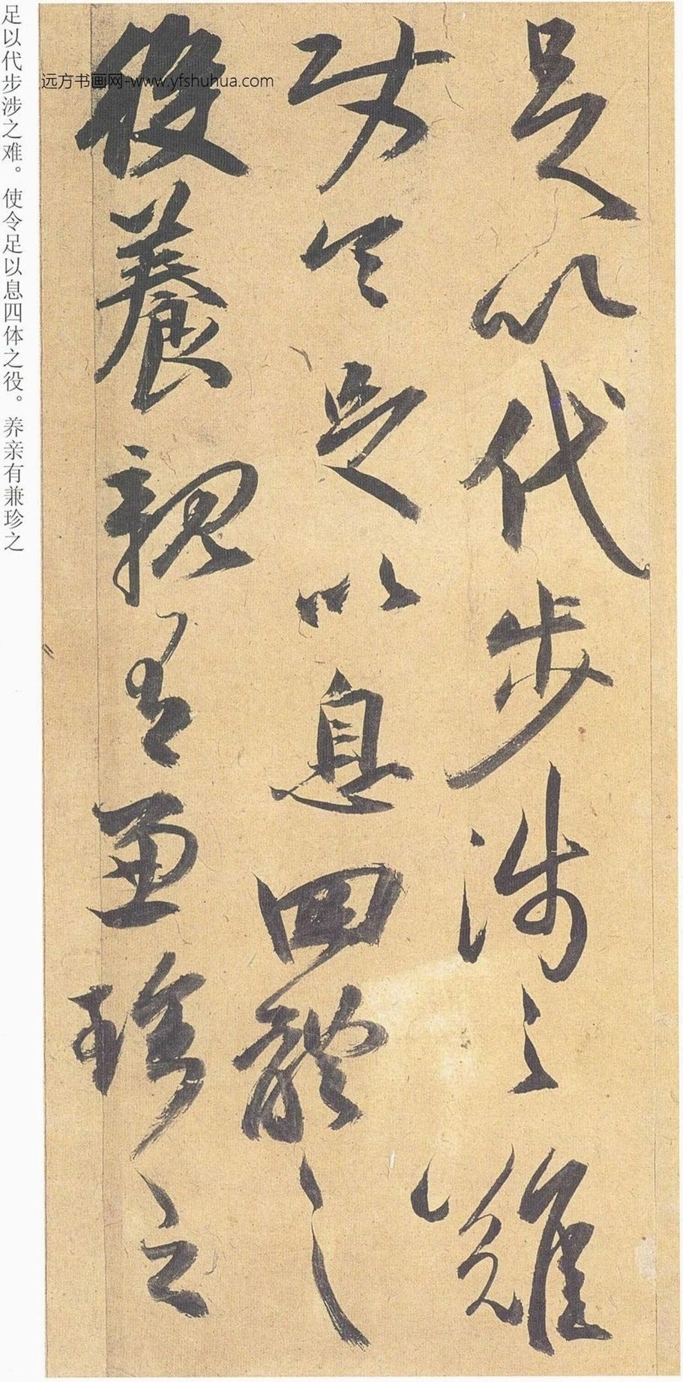 足以代步涉之難
使令足以息四體之
役養親有兼珍之
足以代步涉之难。使令足以息四体之役。养亲有兼珍之
远方书画网-www.yfshuhua.com